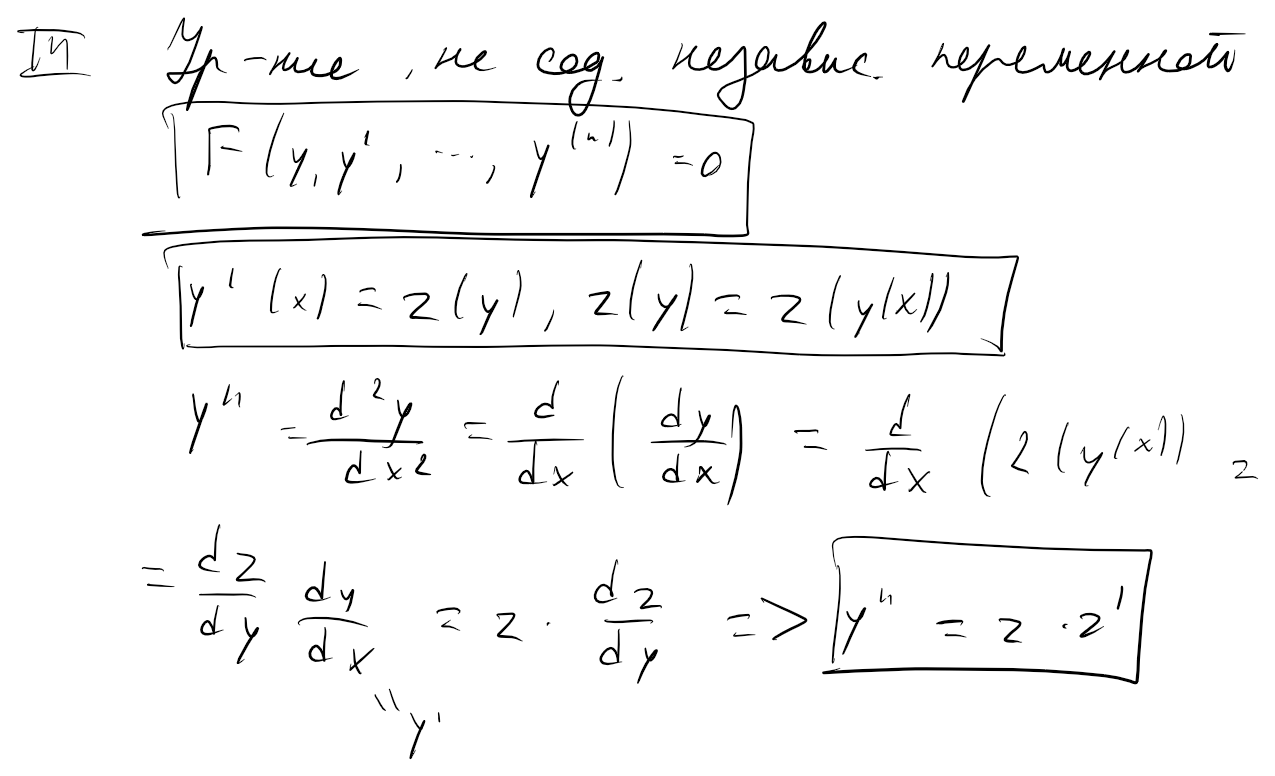 IV Ур-ние, не сод. независ. переменной
F(y, y', ..., y⁽ⁿ⁾) = 0
y'(x) = z(y), z(y) = z(y(x))
y'' = d²y/dx² = d/dx (dy/dx) = d/dx (z(y(x)) =
= dz/dy dy/dx = z · dz/dy => y'' = z · z'
"y'